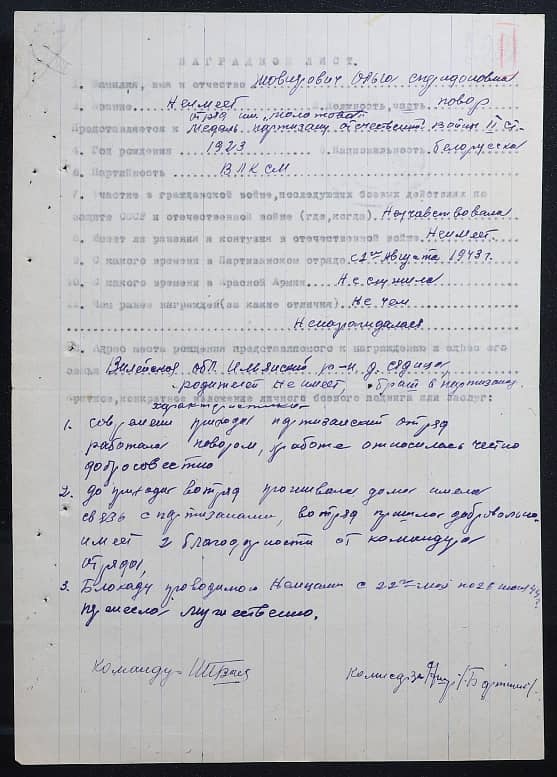 НАГРАДНОЙ ЛИСТ.
1. Фамилия, имя и отчество Ольга Спиридоновна
2. Звание Неимеет 3. Должность, часть повар
отряд им. "Молотова"
Представляется к медаль партизану отечествен. войны II ст.
4. Год рождения 1923 5. Национальность белорусска
6. Партийность ВЛКСМ
7. Участие в гражданской войне, последующих боевых действиях по
защите СССР и отечественной войне (где, когда).
8. Имеет ли ранения и контузии в отечественной войне. Неимеет.
9. С какого времени в Партизанском отряде с 2го Августа 1943 г.
10. С какого времени в Красной Армии. Не служила
11. Чем ранее награжден (за какие отличия) Не чем
Ненараждалася
Адрес места рождения представляемого к награждению и адрес его
семьи Вилейская обл. р-н. д.
родителей Неимеет, брат в партизанах
Краткое, конкретное изложение личного боевого подвига или заслуг:
характеристика
1. Современи прихода партизанский отряд
работала поваром, кработе относилась честно
добросовестно
2. до прихода вотряд проживала дома имела
связь с партизанами, вотряд пришла добровольно
имеет 2 благодарности от командира
отряда,
3. Блокаду проводимою Немцами с 22го мая по
пренесла мужественно.
Командир
Комиссар